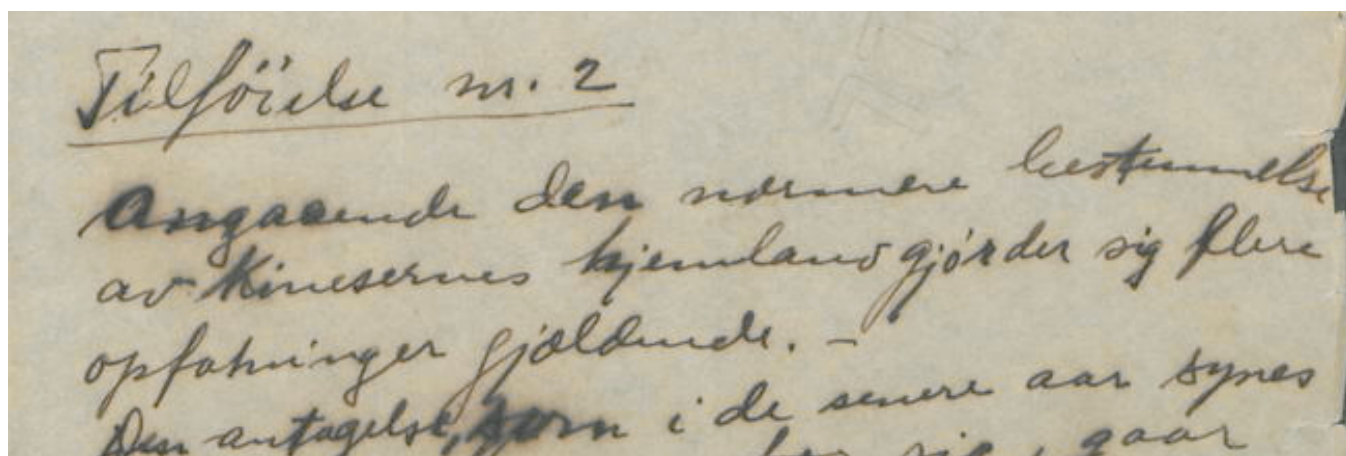 Tilföielse nr. 2
Angaaende den nærmere bestemmelse
av Kinesernes hjemland gjør der sig flere
opfatninger gjældende. –
Den antagelse, som i de senere aar synes
sig, gaar